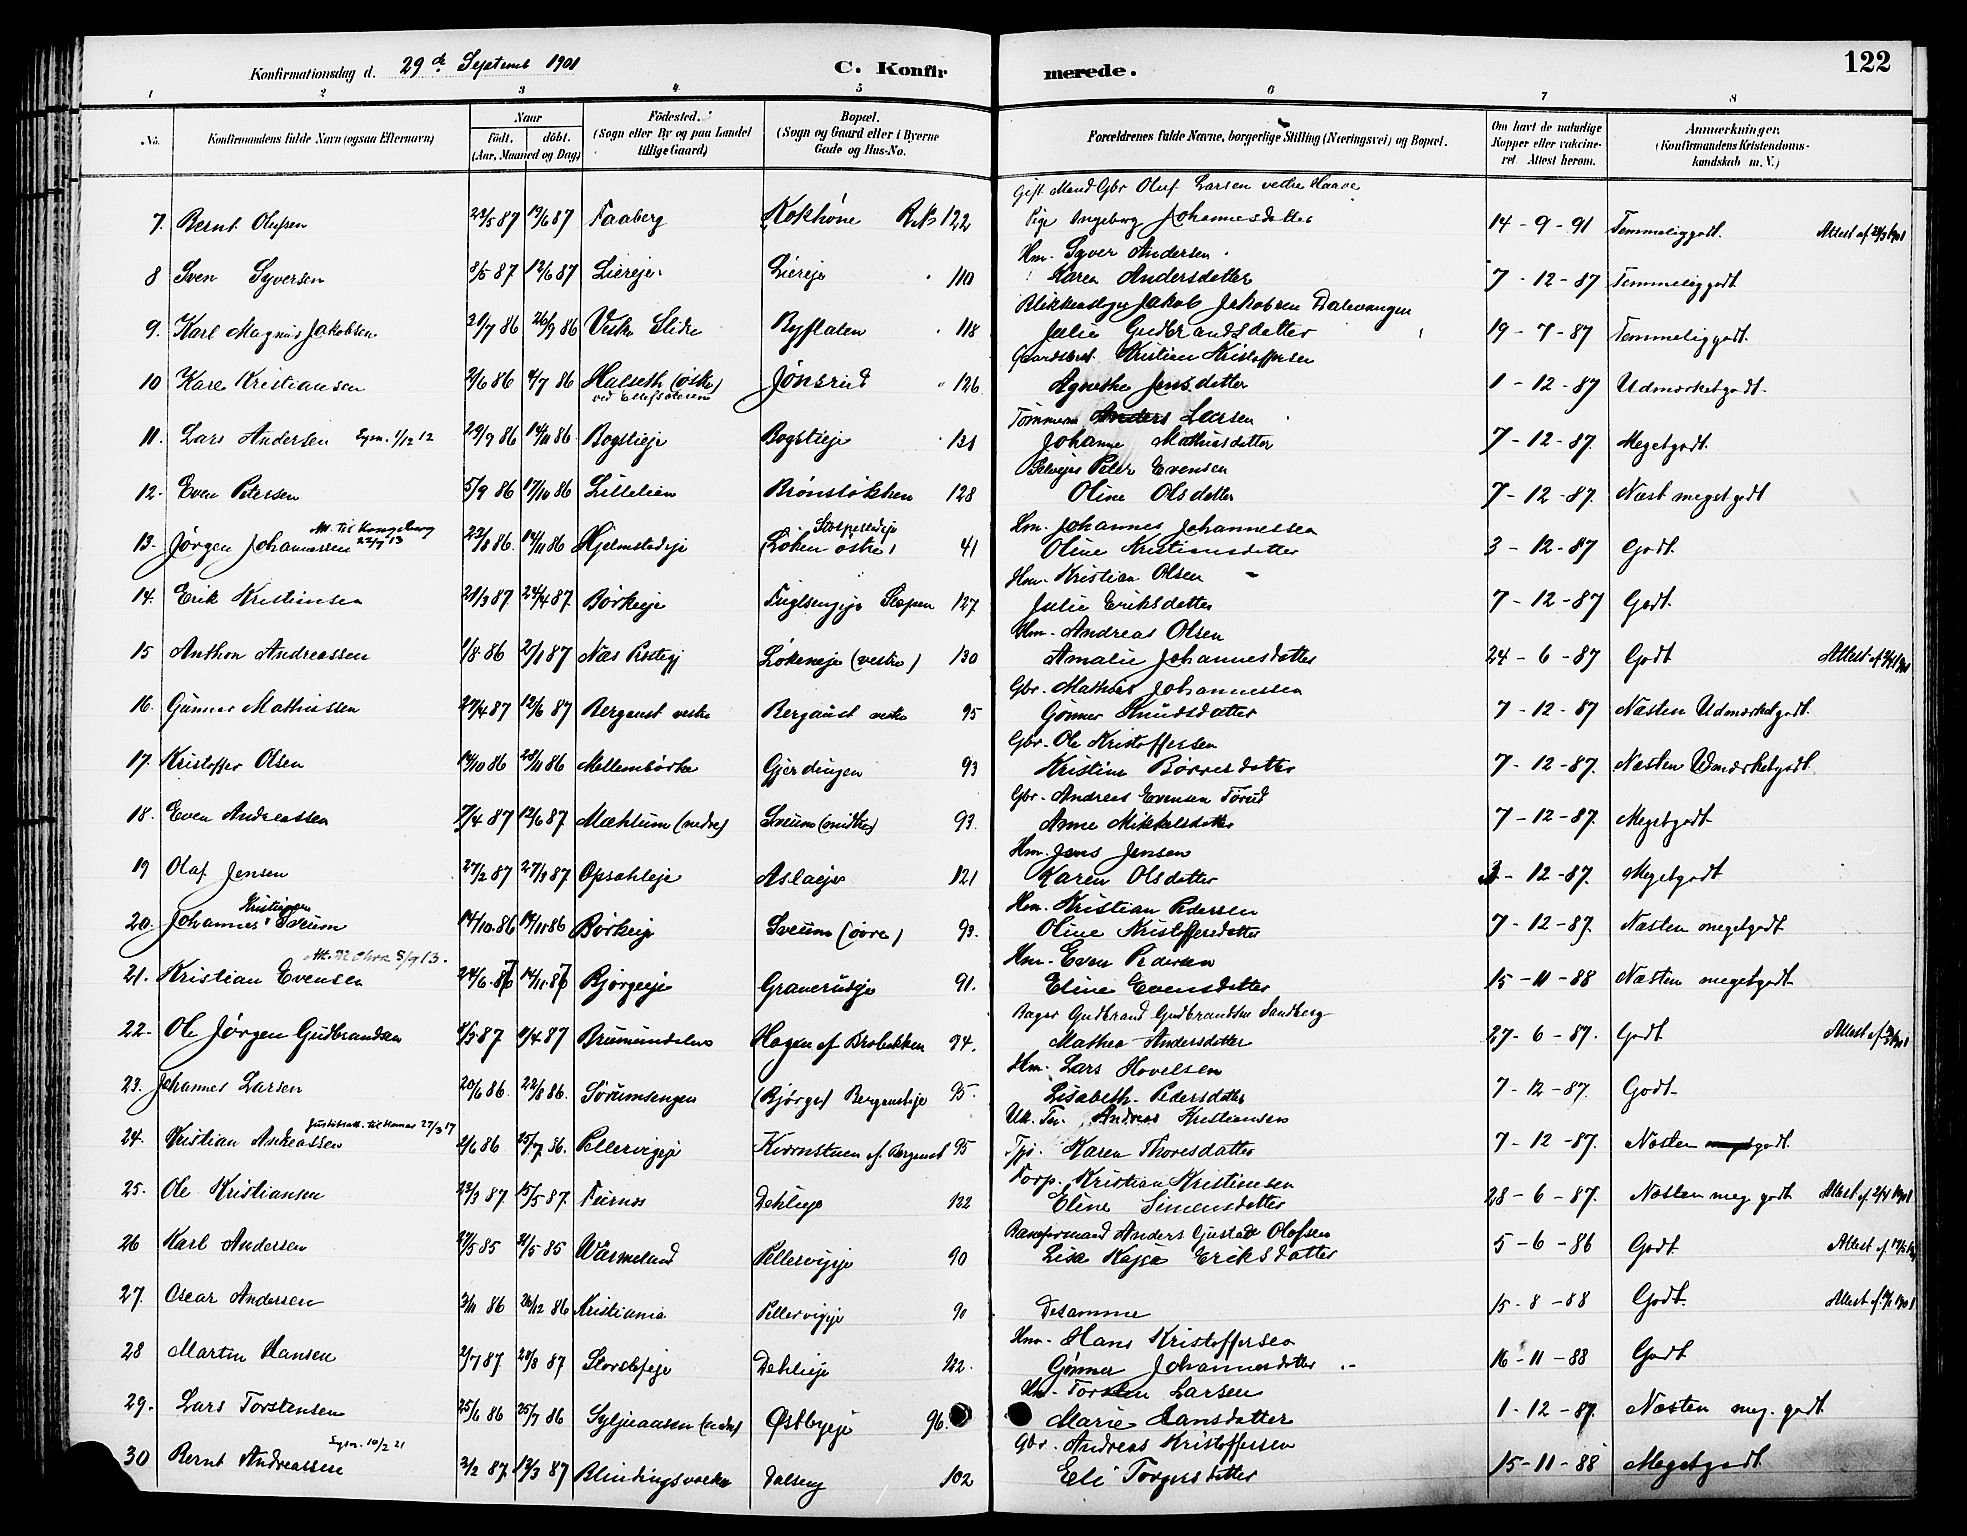 Konfirmationsdag d. 29de Septemb 1901 C. Konfirmerede. 122
1 2 3 4 5 6 7 8
No. Konfirmandens fulde Navn (ogsaa Efternavn) Naar født. døbt. (Aar, Maaned og Dag) Fødested. (Sogn eller By og paa Landet tillige Gaard) Bopæl. (Sogn og Gaard eller i Byerne Gade og Hus-No. Forældrenes fulde Navne, borgerlige Stilling (Næringsvei) og Bopæl. Om havt de naturlige Kopper eller vaccineret Attest herom. Anmerkninger, (Konfirmandens Kristendomskundskab m. V.)
Gift Mand Gbr Oluf Larsen vestre Haave
7. Bernt Olufsen 87 19/6 87 Faaberg 122 Pige Ingeborg Johannesdatter 14-9-91 Temmeliggodt. Attest af
Hm. Syver Andersen
8 Sven Syversen 8/5 87 12/6 87 Liereje Liereje 110 Karen Andersdatter 7-12-87 Temmeliggodt
Jakob Jakobsen Dalevangen
9. Karl Magnus Jakobsen 86 26/9 86 Vestre Slidre Byflaten 118 Julie Gudbrandsdatter 19-7-87 Temmeliggodt.
Kristian Kristoffersen
10 Karl Kristiansen 2/6 86 4/7 86 Halseth (østre) Jønsrud 126 Agnethe Jensdatter 1-12-87 Udmærketgodt.
Tømmerm Anders Larsen
11. Lars Andersen 1/12 12 29/9 86 14/11 86 Bogstieje Bogstieje Johanne Mathiasdatter 7-12-87. Megetgodt.
Selvejer Peter Evensen
12. Even Petersen 5/9 86 17/10 86 Lillelien Brønsløkken 128 Oline Olsdatter 7-12-87. Næst megetgodt
Att. til Kongsberg 22/7 13 Hm. Johannes Johannessen
13. Jørgen Johannessen 86. 14/11 86 Hjelmstadeje Løken østre 41 Oline Kristiansdatter 3-12-87 Godt.
Hm. Kristian Olsen
14. Erik Kristiansen 21/3 87 24/4 87. Børkeeje 127 Julie Eriksdatter 7-12-87 Godt.
Hm. Andreas Olsen
15 Anthon Andreassen 1/8 86 2/1 87 Næs Løkeneje (vestre) 130 Amalie Johannesdatter 24-6-87 Godt Attest af
Gbr. Mathias Johannessen
16. Gunnar Mathiassen 27/4 87 12/6 87 Bergaust vestre Bergaust vestre 95 Gønner Knudsdatter 7-12-87 Næsten Udmærketgodt.
Gbr. Ole Kristoffersen
17. Kristoffer Olsen 14/10 86 28/11 86 Mellembørke Gjerdingen 93 Kristine Børresdatter 7-12-87. Næsten Udmærketgodt.
Gbr. Andreas Evensen Forud
18. Even Andreassen 7/4 87 12/6 87. Mæhlum (nedre) Sveum (midtre) 93. Anne Mikkelsdatter 7-12-87. Megetgodt.
Hm. Jens Jensen
19 Olaf Jensen 27/2 87 27/3 87 Opsahleje Aslaeje 121 Karen Olsdatter 3-12-87. Megetgodt
Kristiansen Hm. Kristian Pedersen
20. Johannes Sveum 14/10.86 14/11 86 Børkeeje Sveum (øvre) 93. Oline Kristoffersdatter 7-12-87. Næsten megetgodt
Hm. Even Pedersen
21. Kristian Evensen 24/6.87 14/11.87 Bjørgeeje Graverudeje 91. Eline Evensdatter 15-11-88 Næsten megetgodt
Bager Gudbrand Gudbrandsen Sandberg
22. Ole Jørgen Gudbrandsen 87 87 Brumundalen Hagen af Brobakken 94. Mathea Andersdatter 27-6-87. Godt Attest af
Hm. Lars Hovelsen
23. Johannes Larsen 20/6 86. 22/8 86. Sørumsengen (Bjørge) Bergausteje 95. Lisabeth Pedersdatter 7-12-87. Godt.
til Hamar 27/3 17 Uk. Tm. Andreas Kristiansen
24. Kristian Andreassen 2/6 86 25/7 86. Pellervigeje Kværnstuen af Bergaust 95 Tpi. Karen Thoresdatter 7-12-87. Næsten godt.
Forp. Kristian Kristiansen
25. Ole Kristiansen 23/3 87 15/5 87. Furnes Dehlieje 122 Eline Simensdatter 28-6-87. Næsten meg. godt Attest af
Baneformand Anders Gustav Olofsen
26 Karl Andersen 85 85 Wærmeland Pellervigeje 90 Lisa Kajsa Eriksdatter 5-6-86 Godt. Attest af
27. Oscar Andersen 3/11 86 26/12 86 Kristiania Pellervigeje 90 Desamme 15-8-88 Godt. Attest af
Hm. Hans Kristoffersen
28 Martin Hansen 2/7 87 28/8 87 Dehlieje 122. Gønner Johannesdatter 16-11-88 Godt.
Torsten Larsen
29. Lars Torstensen 25/6 86 25/7 86 Syljuaasen (nedre) Østbyeje 96. Marie Hansdatter 1-12-87. Næsten meg. godt
10/2 21 Gbr. Andreas Kristoffersen
30 Bernt Andreassen 2/2 87. 13/3 87 Blindingsvolden Dalseng 102 Eli Torgersdatter 15-11-88 Megetgodt.